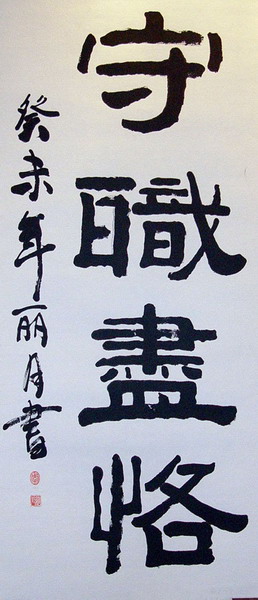 守職盡恪
癸未年丽月書